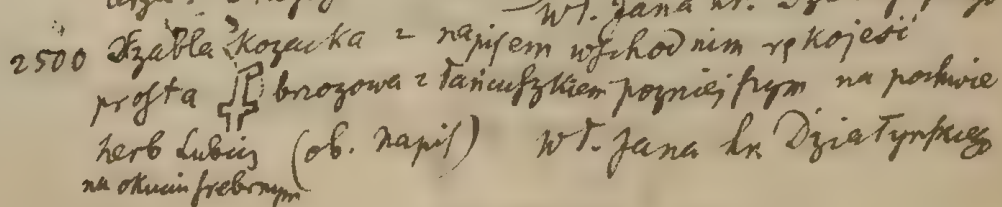 Wł. Jana hr.
2500 Szabla Kozacka z napisem wschodnim rękojeść
prosta brozowa z łańcuszkiem pozniejszym na pochwie
herb Lubicz (ob. napis) Wł. Jana hr. Działyńskiego
na okuciu srebrnym